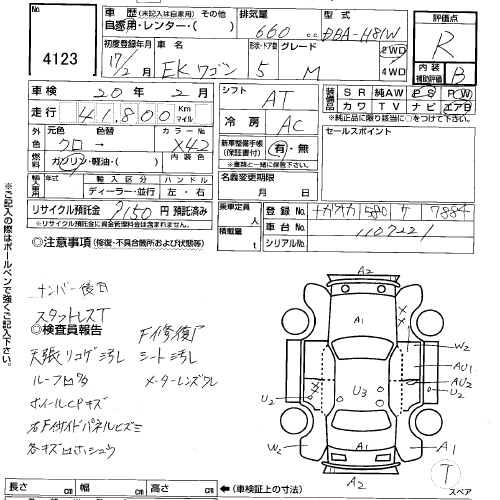 4123
車歴 (未記入は自家用) その他
自家用・レンター・( )
排気量
660 cc
型式
DBA-H81W
評価点
R
初度登録年月
17/2 月
車名
EKワゴン
形状・ドア数
5
グレード
M
2WD
4WD
内装
補助評価
B
車検 20年 2月
シフト
AT
装備品
SR 純AW PS PW
カワ TV ナビ エアB
※純正品に限り該当に○をつけて下さい
走行 41,800 Km
マイル
冷房
AC
セールスポイント
外色 元色 色替 カラー№
クロ → X42
新車整備手帳
(保証書付)
有・無
※書類と一緒に保管して下さい。
燃料 ガソリン・軽油・( )
内装色
輸入車用 年式 輸入区分 ハンドル
ディーラー・並行 左・右
名義変更期限
月 日
リサイクル預託金 7150 円 預託済み
※リサイクル預託金に資金管理料金は含まれません。
乗車定員
人
積載量
t
登録№ ナガオカ 580 ケ 7884
車台№ 1107221
シリアル№
◎注意事項 (修復・不具合箇所および状態等)
※ご記入の際はボールペンで強くご記入下さい。
ナンバー後日
スタットレスT
◎検査員報告
F廻修復歴
天張リコゲ汚レ シート汚レ
メーターレンズワレ
ホイールCPキズ
各キズ
A2
A1
W2
AU1
AU2
U3
U2
U2
W2
A1
A1
A2
T
スペア
長さ cm 幅 cm 高さ cm ←(車検証上の寸法)